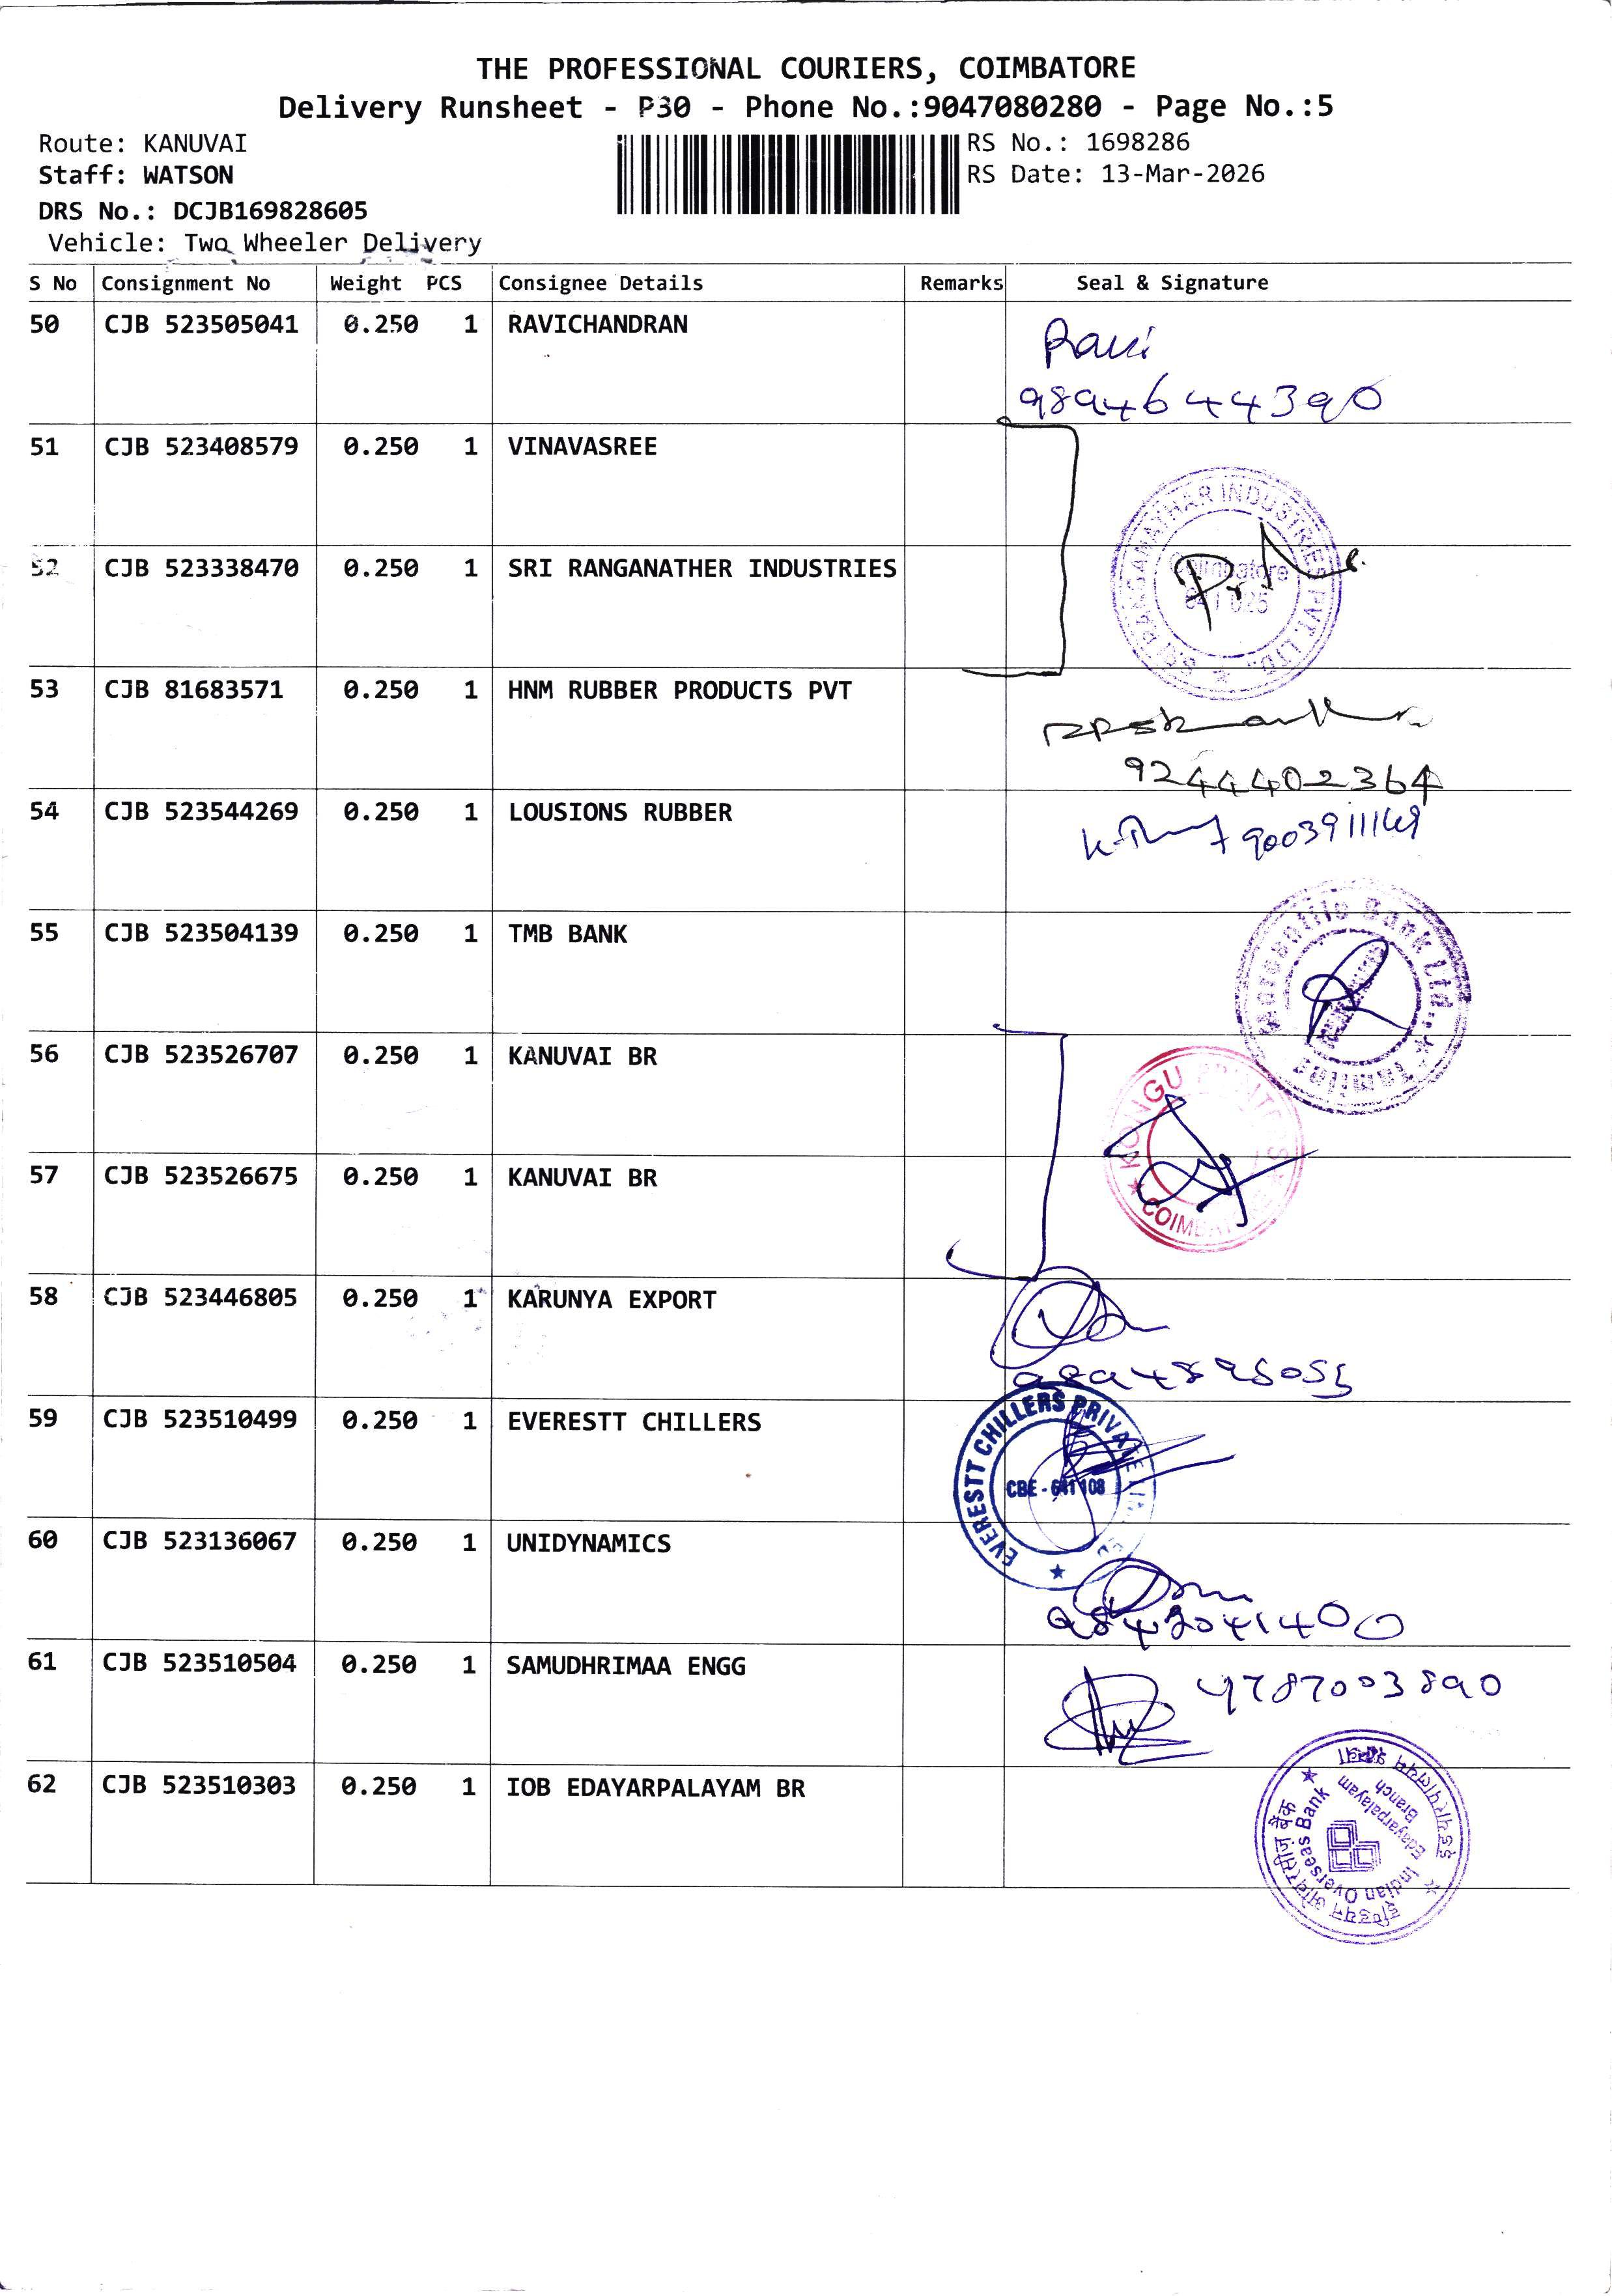 THE PROFESSIONAL COURIERS, COIMBATORE
Delivery Runsheet - P30 - Phone No.:9047080280 - Page No.:5
Route: KANUVAI
RS No.: 1698286
Staff: WATSON
RS Date: 13-Mar-2026
DRS No.: DCJB169828605
Vehicle: Two Wheeler Delivery
S No Consignment No Weight PCS Consignee Details Remarks Seal & Signature
50 CJB 523505041 0.250 1 RAVICHANDRAN
Ravi
9894644390
51 CJB 523408579 0.250 1 VINAVASREE
52 CJB 523338470 0.250 1 SRI RANGANATHER INDUSTRIES
SRI RANGANATHAR INDUSTRIES PVT. LTD.
Coimbatore
641 025
53 CJB 81683571 0.250 1 HNM RUBBER PRODUCTS PVT
9244402364
54 CJB 523544269 0.250 1 LOUSIONS RUBBER
9003911149
55 CJB 523504139 0.250 1 TMB BANK
Tamilnad Mercantile Bank Ltd.,
56 CJB 523526707 0.250 1 KANUVAI BR
57 CJB 523526675 0.250 1 KANUVAI BR
KONGU PRINTERS
COIMBATORE
58 CJB 523446805 0.250 1 KARUNYA EXPORT
59 CJB 523510499 0.250 1 EVERESTT CHILLERS
EVERESTT CHILLERS PRIVATE
CBE - 641 108
60 CJB 523136067 0.250 1 UNIDYNAMICS
61 CJB 523510504 0.250 1 SAMUDHRIMAA ENGG
9787003890
62 CJB 523510303 0.250 1 IOB EDAYARPALAYAM BR
इण्डियन ओवरसीज़ बैंक
Indian Overseas Bank
Edayarpalayam
Branch